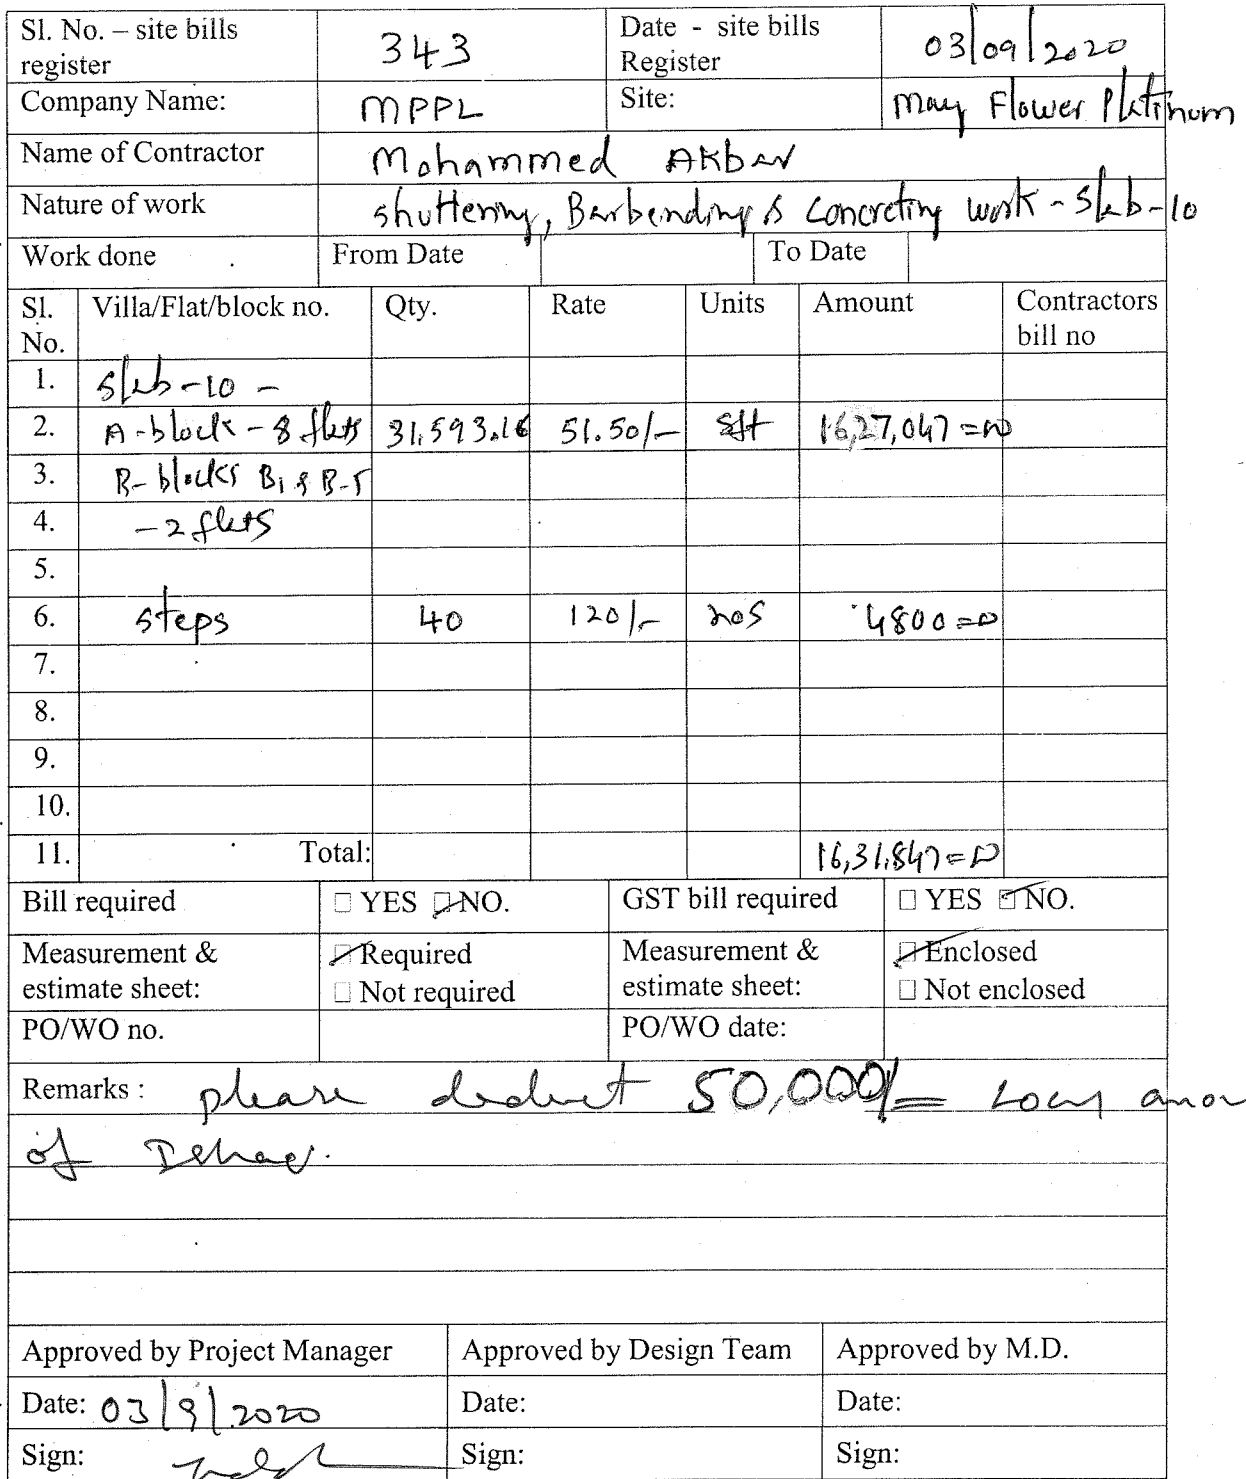 Sl. No. – site bills register 343 Date - site bills Register 03/09/2020
Company Name: MPPL Site: May Flower Platinum
Name of Contractor Mohammed Akbar
Nature of work shuttering, Barbending & Concreting work - Slab-10
Work done From Date To Date
Sl. No. Villa/Flat/block no. Qty. Rate Units Amount Contractors bill no
1. Slab-10 -
2. A-block - 8 flats 31,593.16 51.50/- sft 16,27,047=00
3. B-blocks B1 & B-5
4. - 2 flats
5.
6. steps 40 120/- nos 4800=00
7.
8.
9.
10.
11. Total: 16,31,847=00
Bill required □ YES ☑ NO. GST bill required □ YES ☑ NO.
Measurement & estimate sheet: ☑ Required □ Not required Measurement & estimate sheet: ☑ Enclosed □ Not enclosed
PO/WO no. PO/WO date:
Remarks : please deduct 50,000/= Loan
of
Approved by Project Manager Approved by Design Team Approved by M.D.
Date: 03/9/2020 Date: Date:
Sign: Sign: Sign: